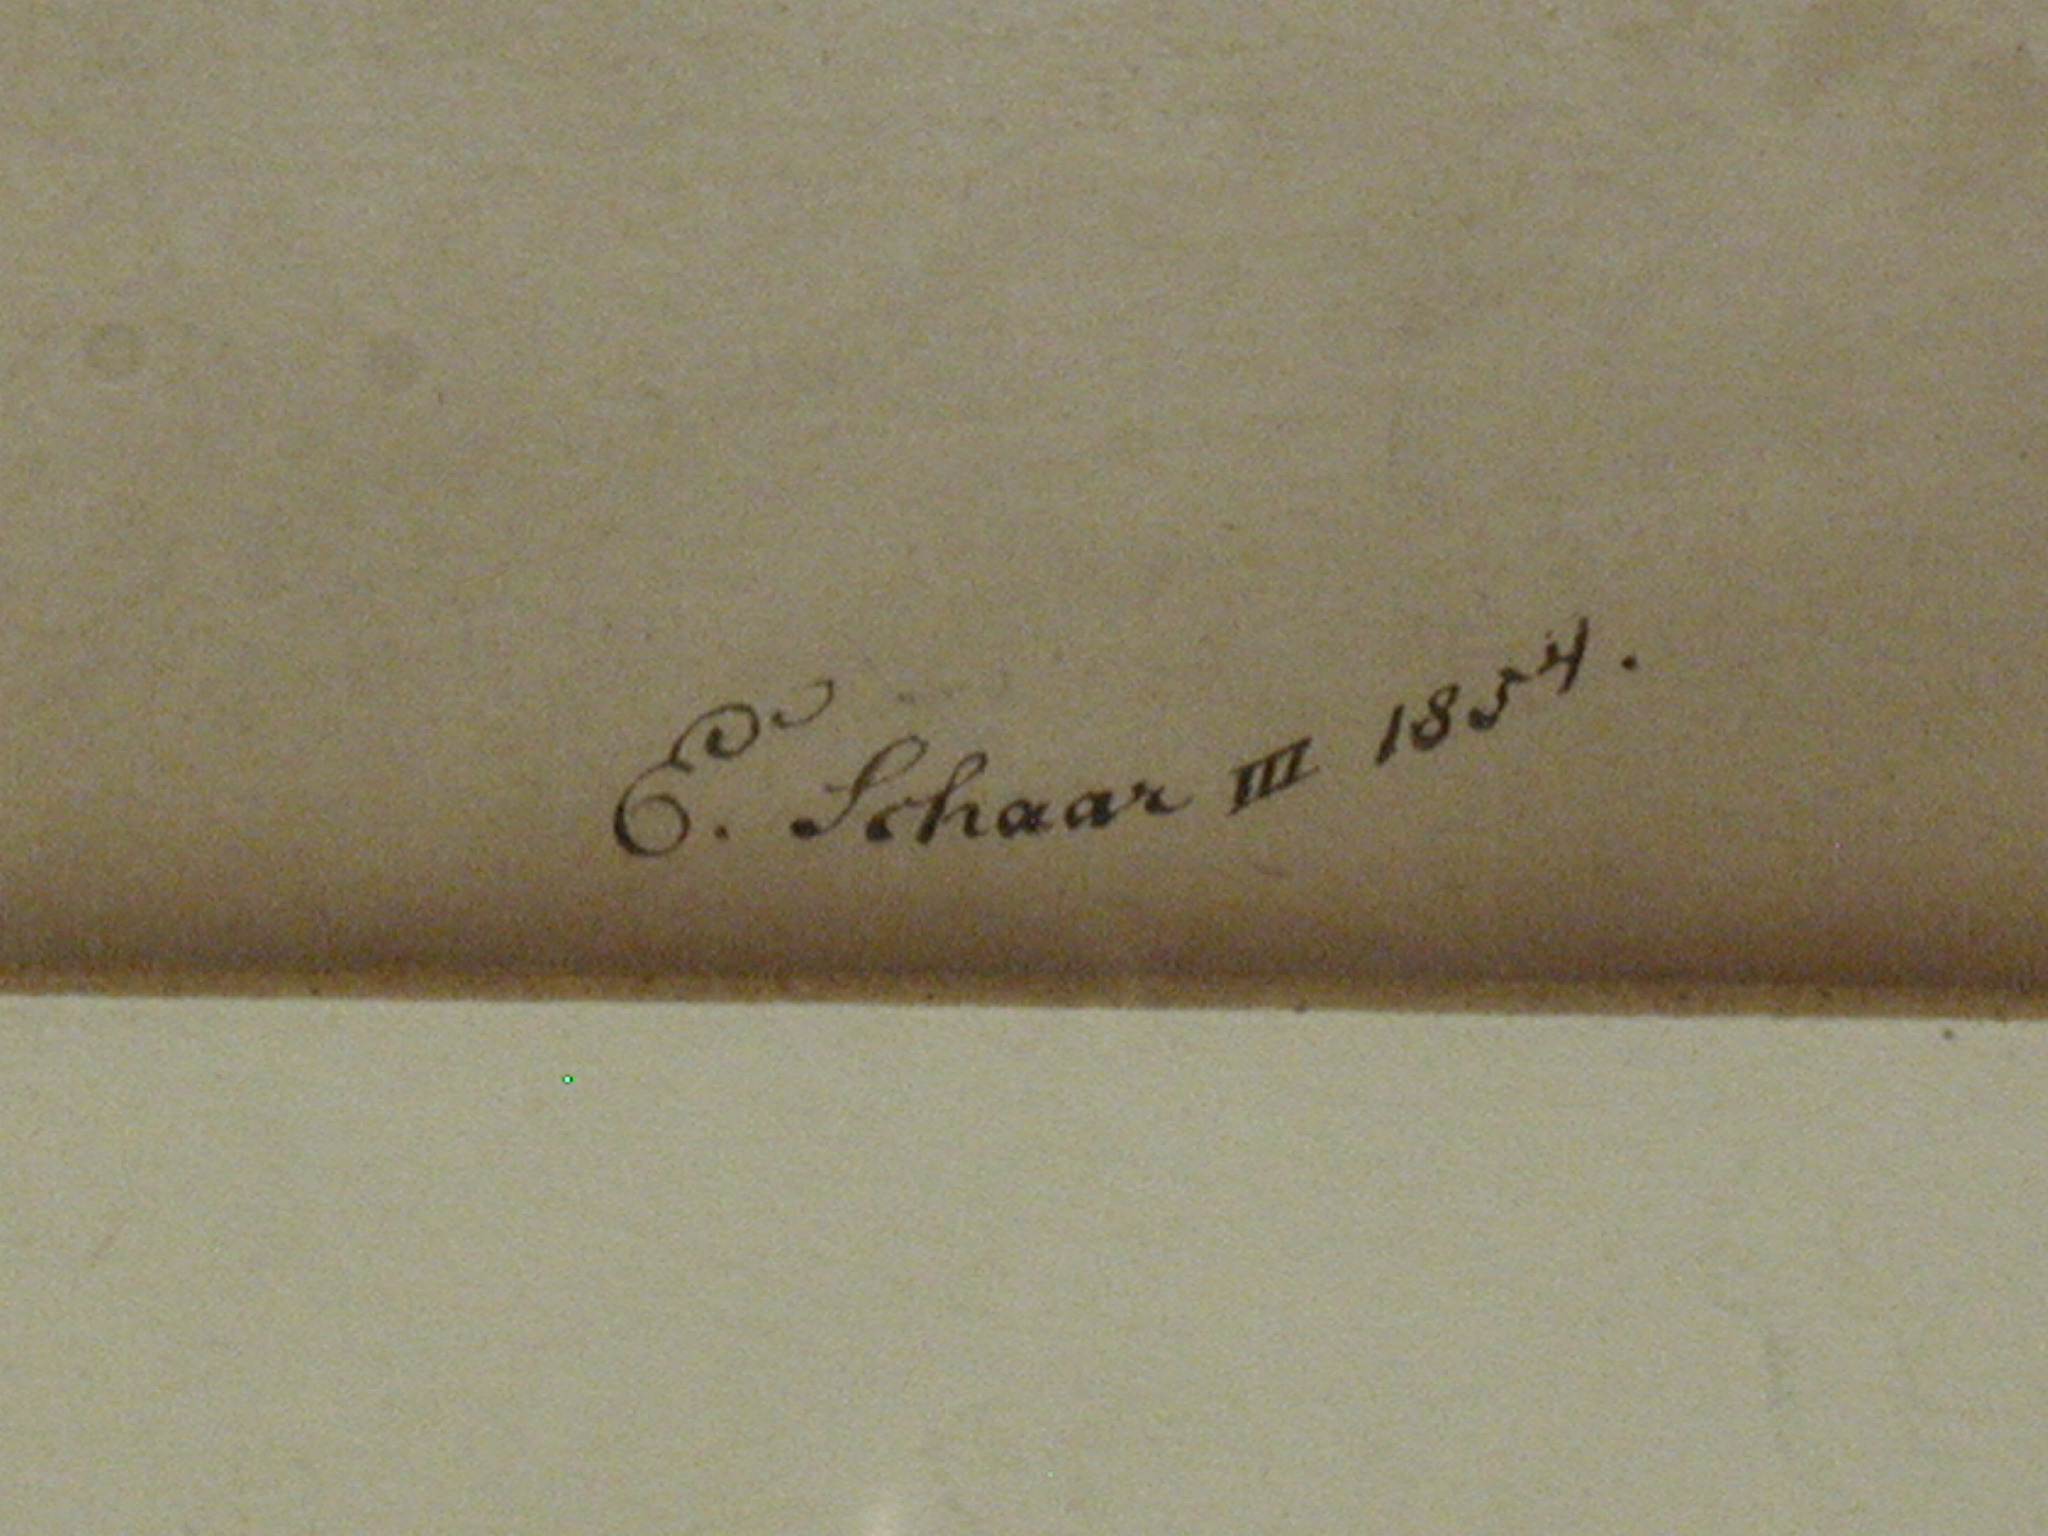 E. Schaar III 1854.